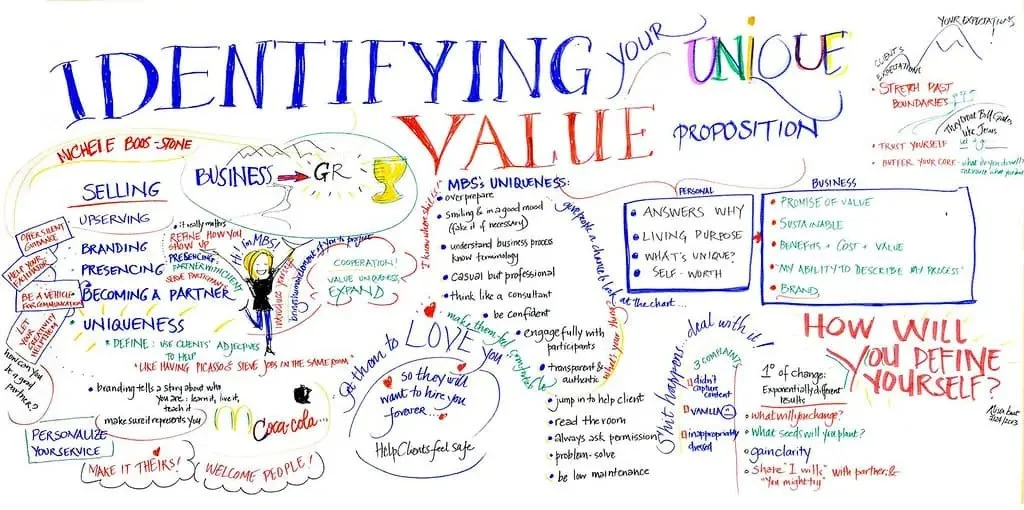 IDENTIFYING YOUR UNIQUE
VALUE PROPOSITION
YOUR EXPECTATIONS!
CLIENT'S
EXPECTATIONS
• STRETCH PAST
BOUNDARIES
They treat Bill Gates
like Jesus
• TRUST YOURSELF
• BUFFER YOUR CORE -
MICHELE BOOS-STONE
BUSINESS → GR
SELLING
UPSERVING
BRANDING
PRESENCING
BECOMING A PARTNER
UNIQUENESS
• it really matters
REFINE HOW YOU
SHOW UP
PRESENCING:
PARTNER WITH CLIENT
SERVE PARTICIPANTS
Hi I'm MBS!
OFFER SILENT
GUIDANCE
HELP YOUR
FACILITATOR
BE A VEHICLE
FOR COMMUNICATION
LET
YOUR
CREATIVITY
HELP THEM
how can you
be a good
partner?
COOPERATION!
VALUE UNIQUENESS
EXPAND
• DEFINE: USE CLIENTS' ADJECTIVES
TO HELP
"LIKE HAVING PICASSO & STEVE JOBS IN THE SAME ROOM"
• branding tells a story about who
you are: learn it, live it,
teach it
make sure it represents you
M
Coca-cola...
PERSONALIZE
YOUR SERVICE
MAKE IT THEIRS!
WELCOME PEOPLE!
Get them to LOVE you
so they will
want to hire you
forever...
Help Clients feel safe
I know where
MBS's UNIQUENESS:
• over prepare
• smiling & in a good mood
(fake it if necessary)
• understand business process
know terminology
• casual but professional
• think like a consultant
• be confident
• engage fully with
participants
• transparent &
authentic
• jump in to help client
• read the room
• always ask permission
• problem-solve
• be low maintenance
make them feel comfortable
give people a chance to look at the chart...
what's your
PERSONAL
• ANSWERS WHY
• LIVING PURPOSE
• WHAT'S UNIQUE?
• SELF-WORTH
BUSINESS
• PROMISE OF VALUE
• SUSTAINABLE
• BENEFITS + COST + VALUE
• 'MY ABILITY TO DESCRIBE MY PROCESS'
• BRAND
Sh!t happens... deal with it!
3 COMPLAINTS
didn't
capture
content
VANILLA
inappropriately
dressed
1° of change:
Exponentially different
results
• what will you change?
• What seeds will you plant?
• gain clarity
• share "I will" with partner &
"You might try"
HOW WILL
YOU DEFINE
YOURSELF?